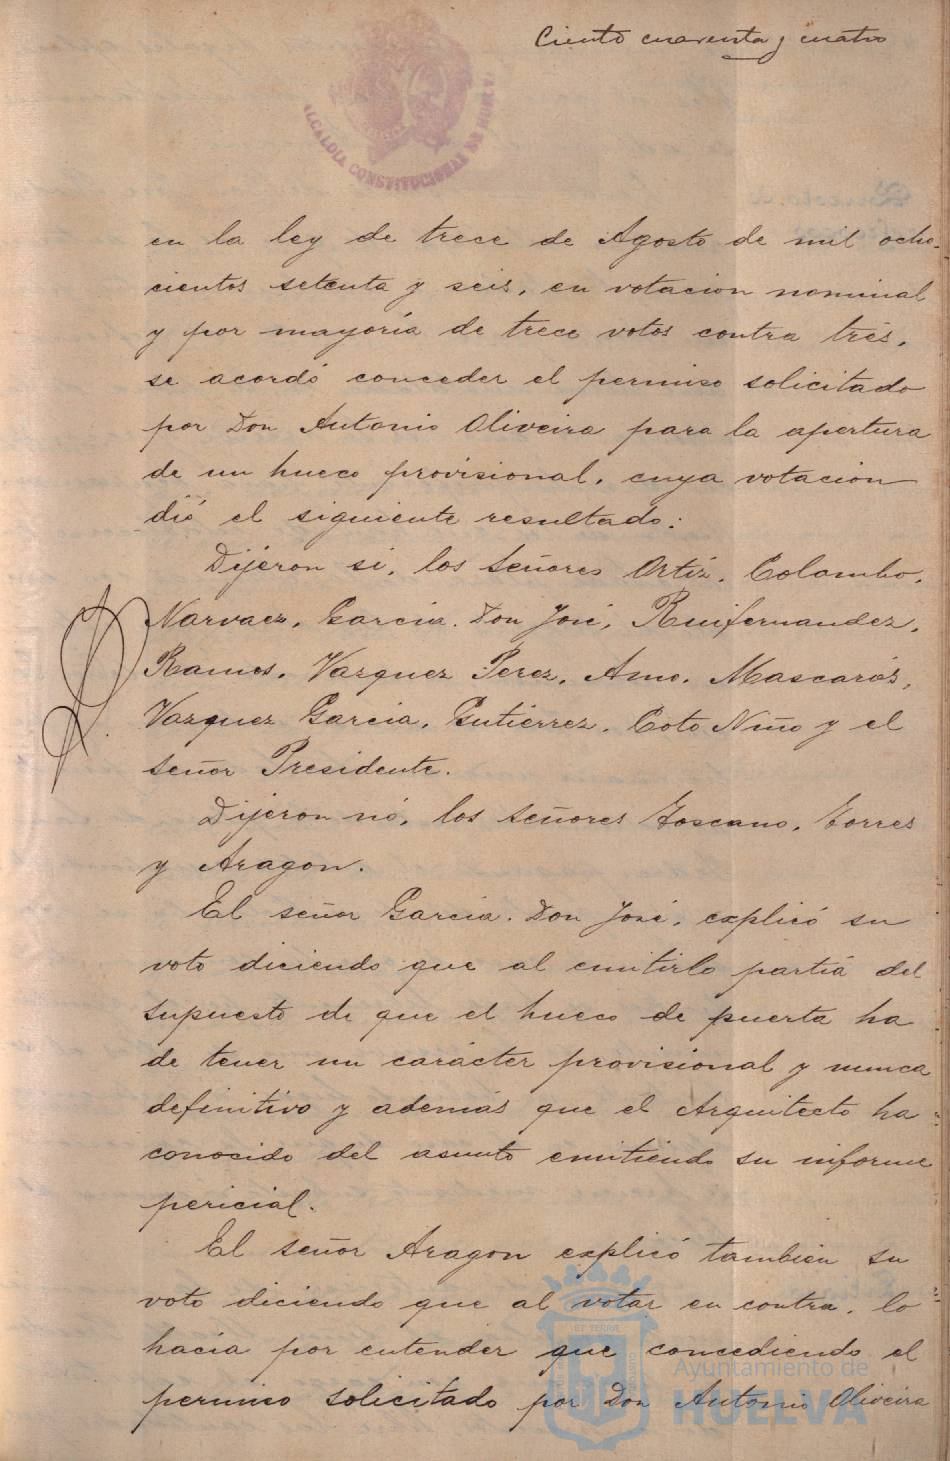 Ciento cuarenta y cuatro
ALCALDIA CONSTITUCIONAL DE HUELVA
en la ley de trece de Agosto de mil ocho-
cientos setenta y seis, en votacion nominal
y por mayoría de trece votos contra trés,
se acordó conceder el permiso solicitado
por Don Antonio Oliveira para la apertura
de un hueco provisional, cuya votacion
dió el siguiente resultado:
Dijeron si, los señores Ortiz, Colombo,
Narvaez, Garcia. Don José, Ruifernandez,
Ramos, Vazquez Perez, Amo, Mascarós,
Vazquez Garcia, Gutiérrez, Coto Niño y el
señor Presidente.
Dijeron nó, los señores Toscano, Torres
y Aragon.
El señor Garcia. Don José, explicó su
voto diciendo que al emitirlo partiá del
supuesto de que el hueco de puerta ha
de tener un carácter provisional y nunca
definitivo y además que el Arquitecto ha
conocido del asunto emitiendo su informe
pericial.
El señor Aragon explicó tambien su
voto diciendo que al votar en contra, lo
hacia por entender que concediendo el
permiso solicitado por Don Antonio Oliveira
Ayuntamiento de
HUELVA